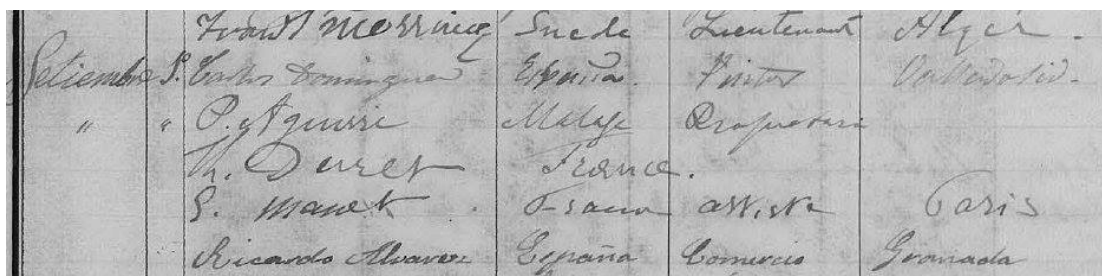 Suede Lieutenant Alger.
Setiembre Carlos Dominguez España. Pintor Valladolid.
" " P. Aguirre Malaga Propietario
Th. Duret France.
E. Manet France artiste Paris
Ricardo Alvarez España Comercio Granada